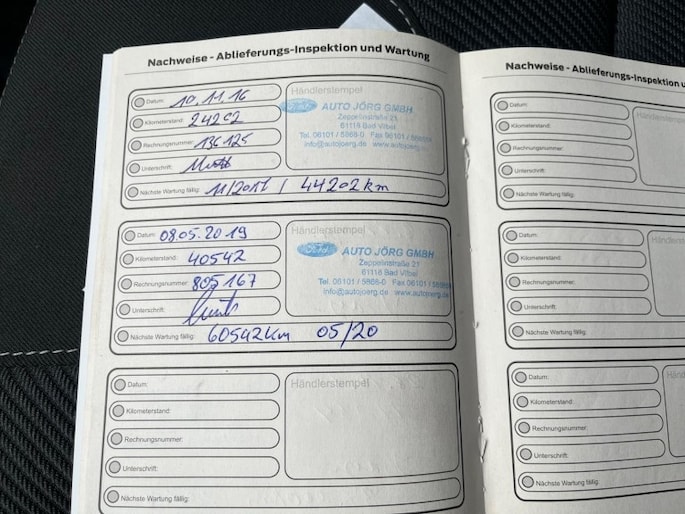 Nachweise - Ablieferungs-Inspektion und Wartung
Datum: 10.11.16
Kilometerstand: 24202
Rechnungsnummer: 136125
Unterschrift:
Nächste Wartung fällig: 11/2017 / 44202km
Händlerstempel
Ford
AUTO JÖRG GMBH
Zeppelinstraße 21
61118 Bad Vilbel
Tel. 06101 / 5868-0 Fax 06101 /
info@autojoerg.de www.autojoerg.
Datum: 08.05.2019
Kilometerstand: 40542
Rechnungsnummer: 805167
Unterschrift:
Nächste Wartung fällig: 60542km 05/20
Händlerstempel
Ford
AUTO JÖRG GMBH
Zeppelinstraße 21
61118 Bad Vilbel
Tel. 06101 / 5868-0 Fax 06101 /
info@autojoerg.de www.autojoerg.de
Datum:
Kilometerstand:
Rechnungsnummer:
Unterschrift:
Nächste Wartung fällig:
Händlerstempel
Nachweise - Ablieferungs-Inspektion u
Datum:
Kilometerstand:
Rechnungsnummer:
Unterschrift:
Nächste Wartung fällig:
Händlerstem
Datum:
Kilometerstand:
Rechnungsnummer:
Unterschrift:
Nächste Wartung fällig:
Händlerst
Datum:
Kilometerstand:
Rechnungsnummer:
Unterschrift:
Nächste Wartung fällig:
Händ